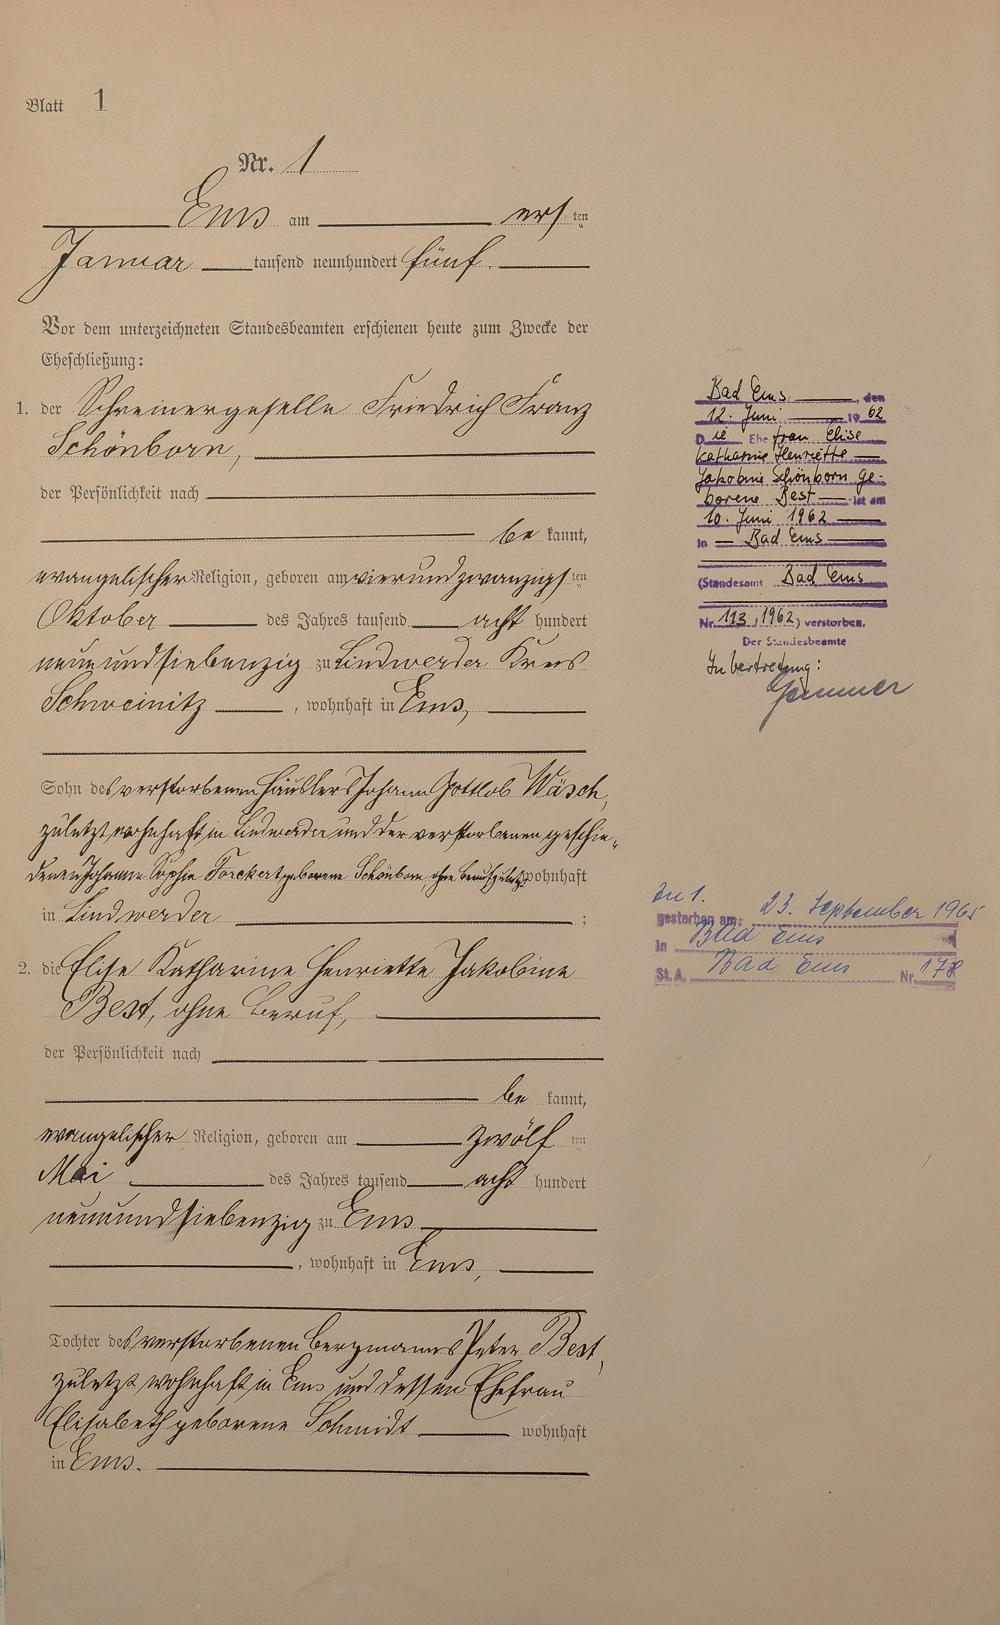 Blatt 1
Nr. 1
Ems am ersten
Januar tausend neunhundert fünf.
Vor dem unterzeichneten Standesbeamten erschienen heute zum Zwecke der
Eheschließung:
1. der Schreinergeselle Friedrich Franz
Schönborn,
der Persönlichkeit nach
be kannt,
evangelischer Religion, geboren am vierundzwanzigsten
Oktober des Jahres tausend acht hundert
neunundsiebenzig zu Lindwerder Kreis
Schweinitz, wohnhaft in Ems,
Sohn des verstorbenen Häuslers Johann Gottlob Wäsch,
zuletzt wohnhaft in Lindwerder und der verstorbenen geschie-
denen Johanne Sophie Torckert geborene Schönborn ohne Beruf zuletzt wohnhaft
in Lindwerder;
2. die Elise Katharine Henriette Jakobine
Best, ohne Beruf,
der Persönlichkeit nach
be kannt,
evangelischer Religion, geboren am zwölften
Mai des Jahres tausend acht hundert
neunundsiebenzig zu Ems
, wohnhaft in Ems,
Tochter des verstorbenen Bergmanns Peter Best,
zuletzt wohnhaft in Ems und dessen Ehefrau
Elisabeth geborene Schmidt wohnhaft
in Ems.
Bad Ems, den
12. Juni 1962
Die Ehefrau Elise
Katharine Henriette
Jakobine Schönborn ge-
borene Best ist am
10. Juni 1962
in Bad Ems
(Standesamt Bad Ems
Nr. 113, 1962) verstorben.
Der Standesbeamte
In Vertretung:
Zu 1.
gestorben am: 23. September 1965
in Bad Ems
St. A. Bad Ems Nr. 178